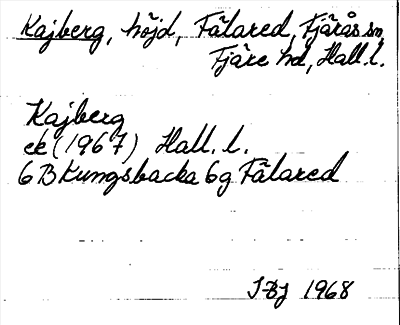 Kajberg, höjd, Fälared, Fjärås sn,
Fjäre hd, Hall. l.
Kajberg
ek (1967) Hall. l.
6 B Kungsbacka 6g Fälared
IBJ 1968